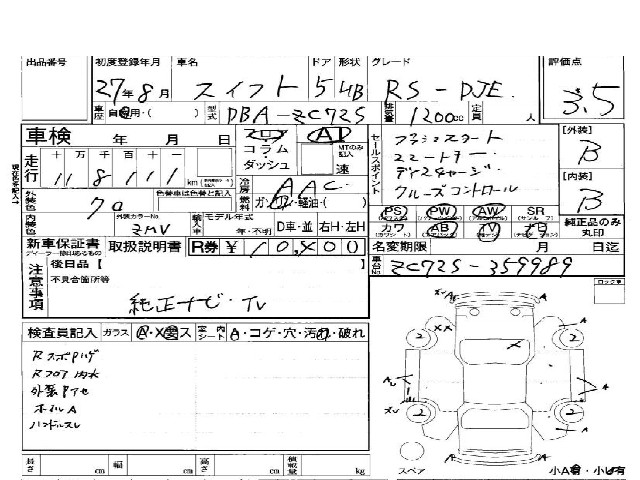 出品番号 初度登録年月 車名 ドア 形状 グレード 評価点
27年8月 スイフト 5 HB RS-DJE 3.5
車歴 自家用・( ) 型式 DBA-ZC72S 排気量 1200cc 定員 人
車検 年 月 日 フロア コラム ダッシュ AT MTのみ記入 速
走行 十 万 千 百 十 一
11 8 111 km
セールスポイント プッシュスタート
スマートキー
クルーズコントロール
[外装] B
[内装] B
冷房 AAC
燃料 ガソリン・軽油・( )
外装色 色替車は色替前色
外装カラーNo ZMV
内装色 輸入車 モデル年式 年・不明 D車・並 右H・左H
PS PW AW SR
カワ AB TV ナビ
純正品のみ丸印
新車保証書 取扱説明書 R券 ¥10,400
名変期限 月 日迄
注意事項 後日品【
不具合箇所等
純正ナビ・TV
車台No. ZC72S-359989
ロック車
検査員記入 ガラス A・X・ス 室内シート A・コゲ・穴・汚れ・破れ
外装
ホイルA
ハンドルスレ
XX
A
A
2 2
2 2
スペア
長さ cm 幅 cm 高さ cm 積載量 kg
小A有・小U有